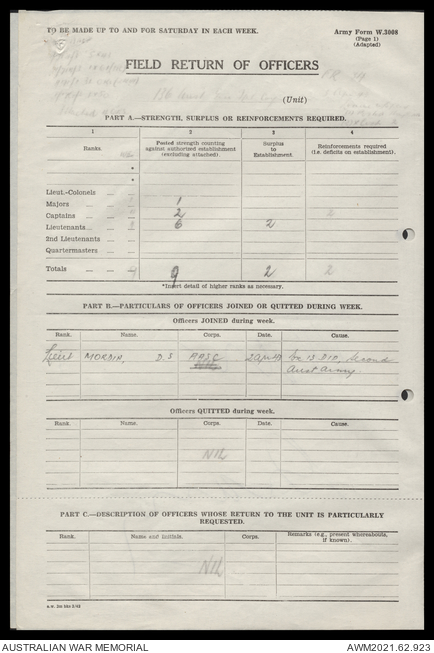 TO BE MADE UP TO AND FOR SATURDAY IN EACH WEEK.
Army Form W.3008
(Page 1)
(Adapted)
FIELD RETURN OF OFFICERS
(Unit)
PART A.—STRENGTH, SURPLUS OR REINFORCEMENTS REQUIRED.
1 2 3 4
Ranks
Posted strength counting against authorized establishment (excluding attached).
Surplus to Establishment.
Reinforcements required (i.e. deficits on establishment).
*
*
Lieut.-Colonels — —
Majors — — 1
Captains — — 2 2
Lieutenants — — 6 2
2nd Lieutenants —
Quartermasters —
Totals — — 9 2 2
*Insert detail of higher ranks as necessary.
PART B.—PARTICULARS OF OFFICERS JOINED OR QUITTED DURING WEEK.
Officers JOINED during week.
Rank. Name. Corps. Date. Cause.
Lieut D.S AASC Second
Aust Army
Officers QUITTED during week.
Rank. Name. Corps. Date. Cause.
NIL
PART C.—DESCRIPTION OF OFFICERS WHOSE RETURN TO THE UNIT IS PARTICULARLY REQUESTED.
Rank. Name and Initials. Corps. Remarks (e.g., present whereabouts, if known).
NIL
AUSTRALIAN WAR MEMORIAL
AWM2021.62.923